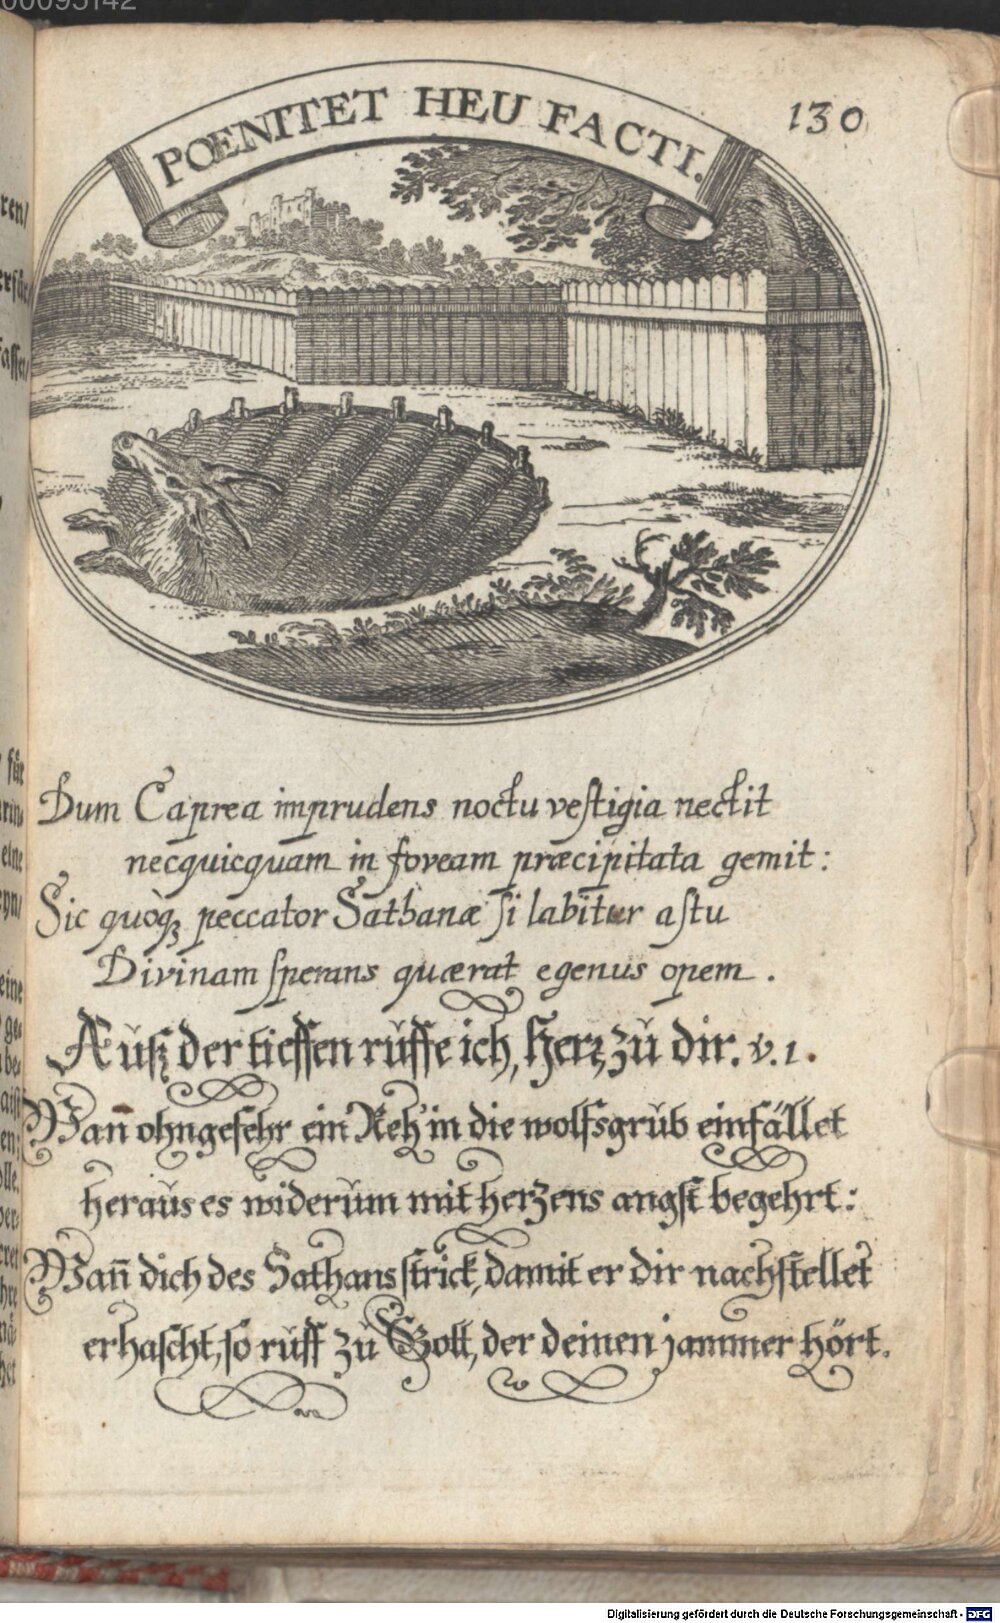 00095142
130
POENITET HEU FACTI.
Dum Caprea imprudens noctu veſtigia nectit
necquicquam in foveam præcipitata gemit:
Sic quoq; peccator Sathanæ ſi labitur aſtu
Divinam ſperans quærat egenus opem.
Auſz der tieffen rŭffe ich, Herr, zŭ dir. v. 1.
Wan̄ ohngefehr ein Reh in die wolfsgrŭb einfället
heraŭs es widerŭm mit herzens angſt begehrt:
Wan̄ dich des Sathans ſtrick, damit er dir nachſtellet
erhaſcht, ſo rŭff zŭ Gott, der deinen jammer hört.
Digitalisierung gefördert durch die Deutsche Forschungsgemeinschaft - DFG